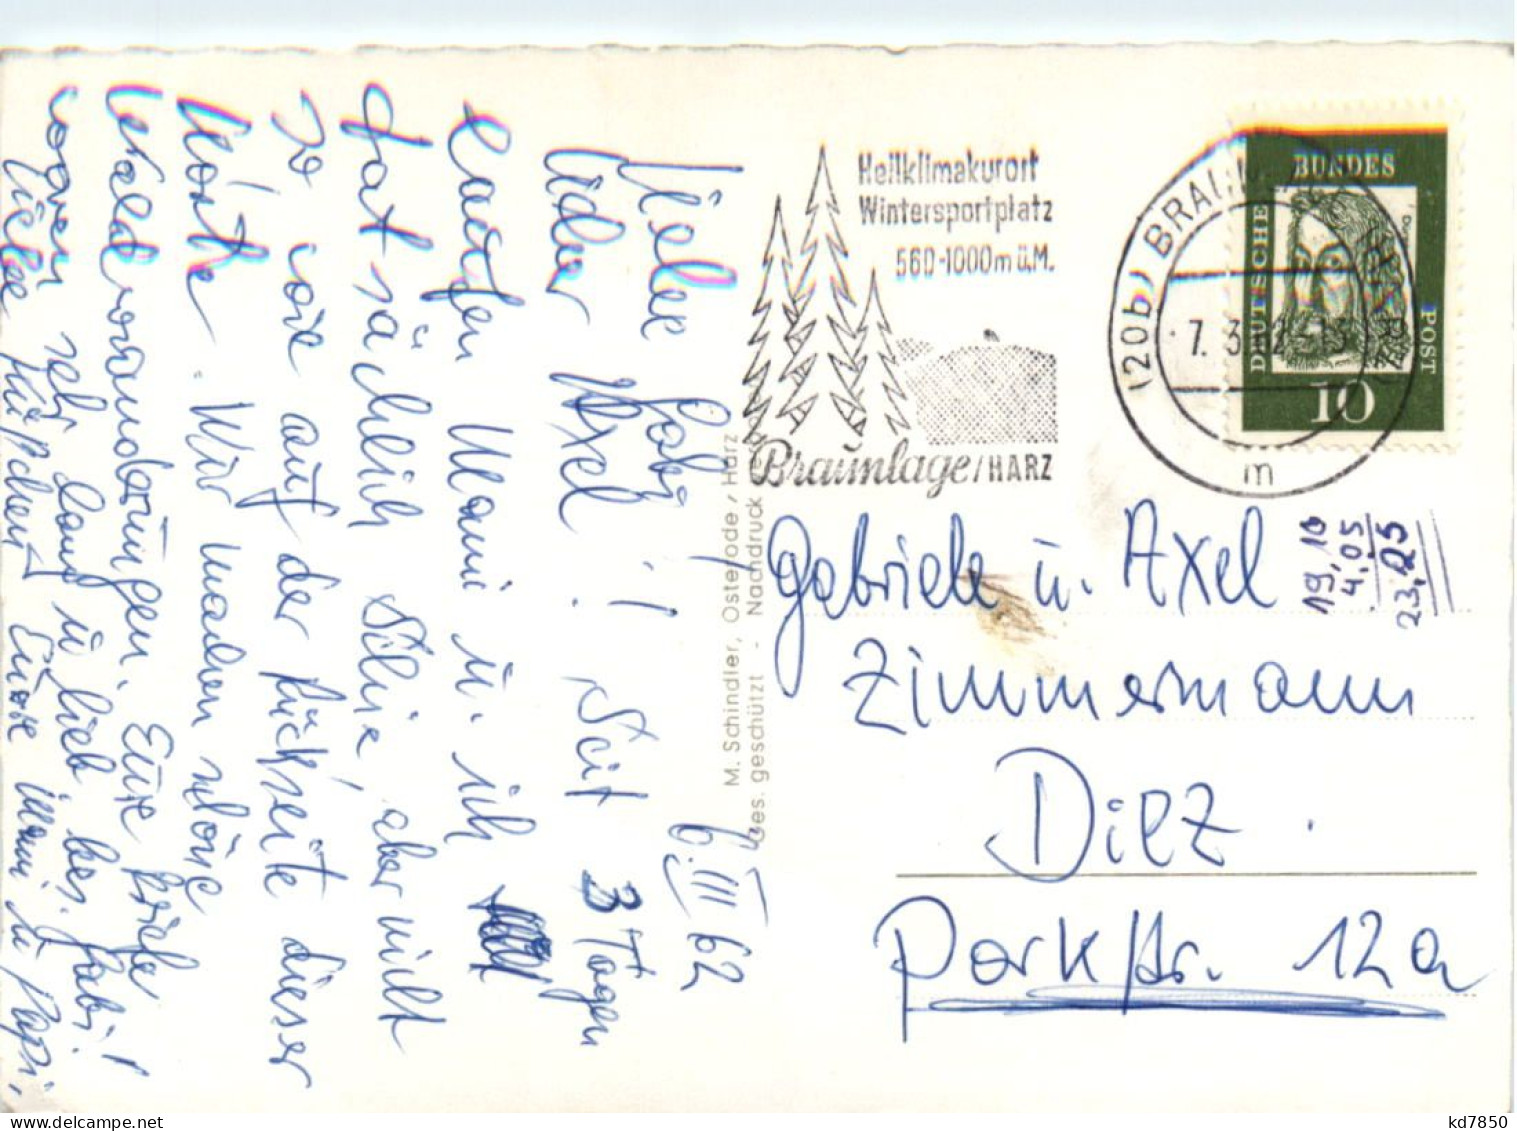 6. III 62
Liebe Gabi!
Lieber Axel! Seit 3 Tagen
laufen Mami u. ich
tatsächlich Schie, aber nicht
so wie auf der Rückseite dieser
Karte. Wir machen schöne
Waldwanderungen. Eure Briefe
waren sehr lang u. lieb, bes. Gabi!
Liebe Küßchen Eure Mami u Papi,
M. Schindler, Osterode / Harz
Ges. geschützt - Nachdruck
Heilklimakurort
Wintersportplatz
560-1000m ü.M.
Braunlage/HARZ
(20b) BRAUNLAGE (HARZ)
7. 3. 62 - 13
m
DEUTSCHE BUNDES POST
10
19,10
4,05
23,25
Gabriele u. Axel
Zimmermann
Diez
Parkstr. 12a
kd7850